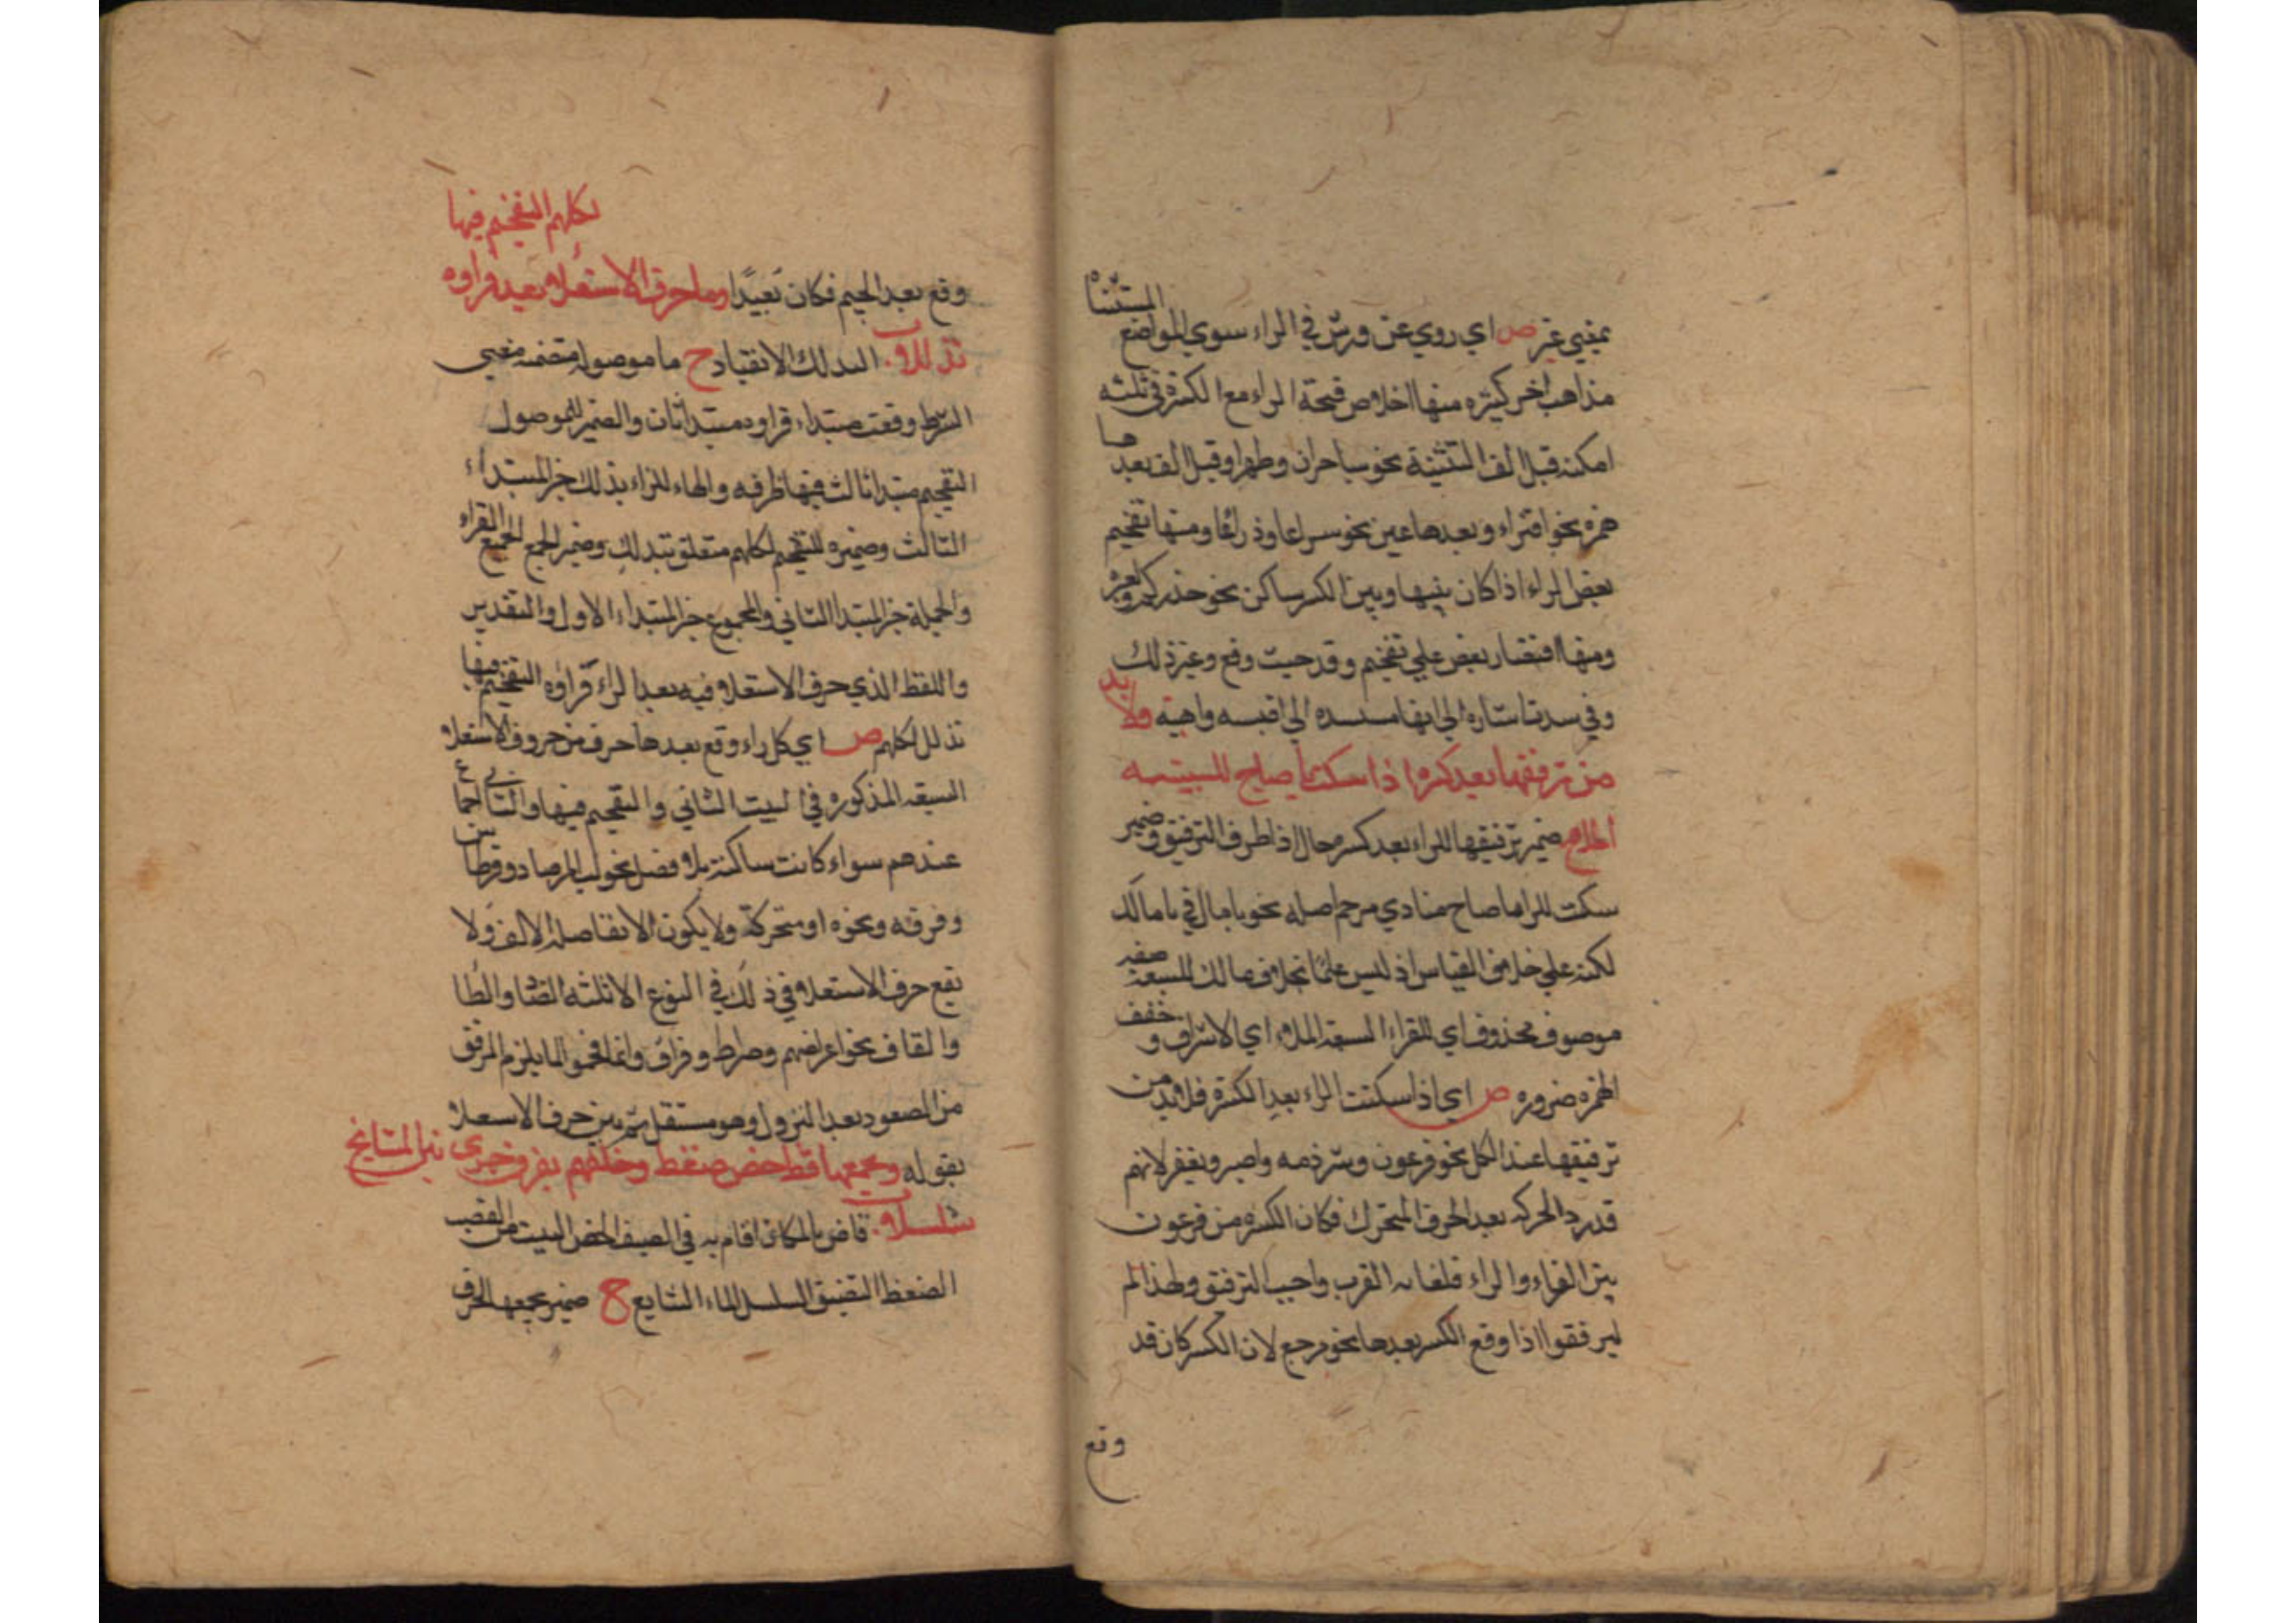 بمعني غير ص اي روي عن ورش في الراء سوي المواضع المستثناه
مذاهب اخر كثيره منها اخلاص فتحة الراء مع الكسرة في ثلثه
امكنه قبل الف التثنية نحو ساحران وطهرا وقبل الف بعدها
همزه نحو افتراء وبعدها عين نحو سراعا وذراعا ومنها تفخيم
بعض الراء اذا كان بينها وبين الكسر ساكن نحو حذركم
ومنها اقتصار بعض علي تفخيم وقد حيث وقع وغير ذلك
وفي اشاره الي انها الي واهية ولا بد
من ترقيقها بعد كسره اذا سكنت يا صاح للسبعه
الملا ح ضمير ترقيقها للراء بعد كسر محال اذا ظرف الترقيق وضمير
سكنت للراء صاح منادي مرخم اصله نحو يا مال في يا مالك
لكنه علي خلاف القياس اذ ليس علما بخلاف مالك للسبعة صفه
موصوف محذوف اي للقراء السبعة الملاء اي الاشراف و خفف
الهمزه ضروره ص اي اذا سكنت الراء بعد الكسرة فلا بد من
ترقيقها عند الكل نحو فرعون وشرذمه واصبر ويغفر لانهم
قدر والحركه بعد الحرف المتحرك فكان الكسره من فرعون
بين الفاء والراء القرب واجب الترقيق ولهذا لم
يرققوا اذا وقع الكسر بعدها نحو مرجع لان الكسر كان قد
وقع
لكلهم التفخيم فيها
وقع بعد الجيم فكان بعيدا وما حرف الاستعلاء بعد فراوه
تذللا ب التذلل الانقياد ح ما موصوله متضمنه معني
الشرط وقعت مبتداء فراوه مبتدا ثان والضمير للموصول
التفخيم مبتدا ثالث فيها ظرفه والهاء للراء تذلل خبر المبتداء
الثالث وضميره للتفخيم لكلهم متعلق بتذلل وضمير الجمع لجميع القراء
والجملة خبر المبتدا الثاني والمجموع خبر المبتداء الاول والتقدير
واللفظ الذي حرف الاستعلاء فيه بعد الراء فراوه التفخيم فيها
تذلل لكلهم ص اي كل راء وقع بعدها حرف من حروف الاستعلاء
السبعه المذكوره في البيت الثاني والتفخيم فيها
عندهم سواء كانت ساكنة بلا فصل نحو لبالمرصاد وقرطاس
وفرقه ونحوه او متحركة ولا يكون الا بفاصله الالف ولا
يقع حرف الاستعلاء في ذلك في النوع الا ثلثه الضاد والطا
والقاف نحو اعراضهم وصراط وفراق وانما فخموا لما يلزم المرقق
من الصعود بعد النزول وهو مستثقل ثم بين حرف الاستعلاء
بقوله ويجمعها قظ خص ضغط وخلفهم بفرق جري بين المشايخ
سلسلا ب قاظ بالمكان اقام به في الصيف الخص البيت من القصب
الضغط التضيق السلسل الماء السايغ ح ضمير يجمعها لحرف